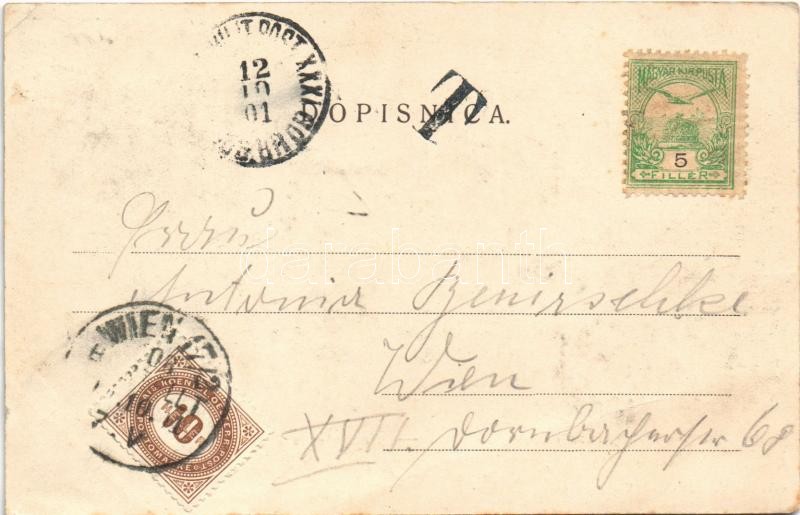 MILIT POST XXXI
12
10
01
T
DOPISNICA.
MAGYAR KIR. POSTA
5
FILLÉR
Frau
Antonia Benirschke
Wien
XVII. Dornbacherstr 68
WIEN 17/2
10
darabanth